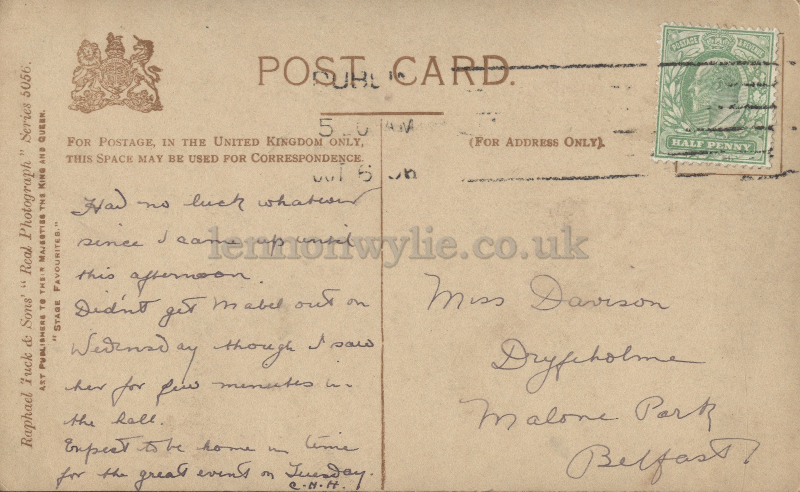 POST CARD.
FOR POSTAGE, IN THE UNITED KINGDOM ONLY,
THIS SPACE MAY BE USED FOR CORRESPONDENCE.
(FOR ADDRESS ONLY).
POSTAGE & REVENUE
HALF PENNY
5 AM
Raphael Tuck & Sons' "Real Photograph" Series 5056.
ART PUBLISHERS TO THEIR MAJESTIES THE KING AND QUEEN.
"STAGE FAVOURITES."
Had no luck whatever
since I came up until
this afternoon.
Didn't get Mabel out on
Wednesday though I saw
her for few minutes in
the hall.
Expect to be home in time
for the great event on Tuesday.
C.H.H.
Miss Davison
Dryfeholme
Malone Park
Belfast
lennonwylie.co.uk